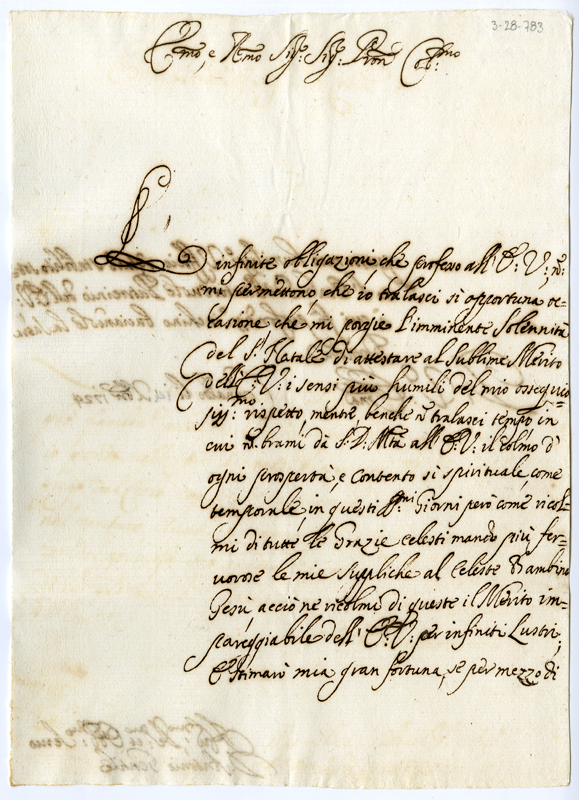 3-28-783
E.mo, e R.mo Sig.r Sig.r Pron Col.mo
L' infinite obligazioni, che professo all' E: V: nõ:
mi permettono, che io tralasci si opportuna oc=
casione, che mi porgie l'imminente Solennità
del S.o Natale di attestare al Sublime Merito
dell' E: V: i sensi più humili del mio ossequio=
siss:mo rispetto, mentre, benche nõ tralasci tempo, in
cui nõ brami da S. D. M.tà all' E: V: il colmo d'
ogni prosperità, e contento si spirituale, come
temporale, in questi S.mi Giorni però come ricol=
mi di tutte le Grazie celesti mando più fer=
vorose le mie suppliche al Celeste Bambino
Gesù, acciò ne ricolmi di queste il Merito im=
pareggiabile dell' E: V: per infiniti Lustri;
E stimarò mia gran fortuna, se per mezzo di